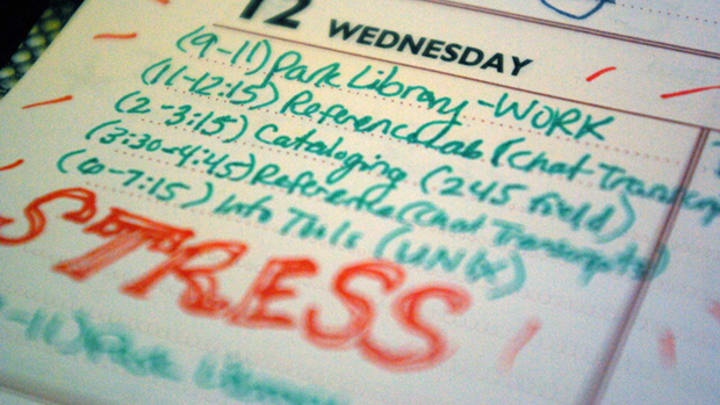 12 WEDNESDAY
(9-11) Park Library - WORK
(11-12:15) Reference Lab (Chat Transcrip
(2-3:15) Cataloging (245 field)
(3:30-4:45) Reference (Chat Transcripts)
(6-7:15) Info Tools (UNIX)
STRESS
-11) Park Library